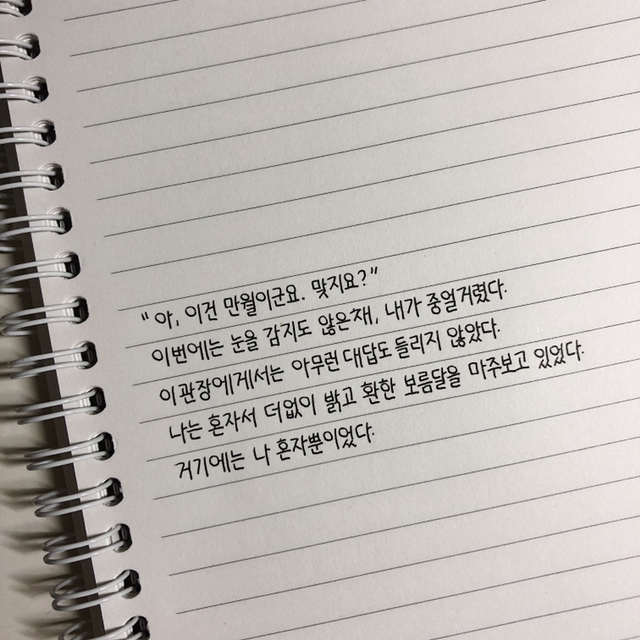 “아, 이건 만월이군요. 맞지요?”
이번에는 눈을 감지도 않은채, 내가 중얼거렸다.
이관장에게서는 아무런 대답도 들리지 않았다.
나는 혼자서 더없이 밝고 환한 보름달을 마주보고 있었다.
거기에는 나 혼자뿐이었다.